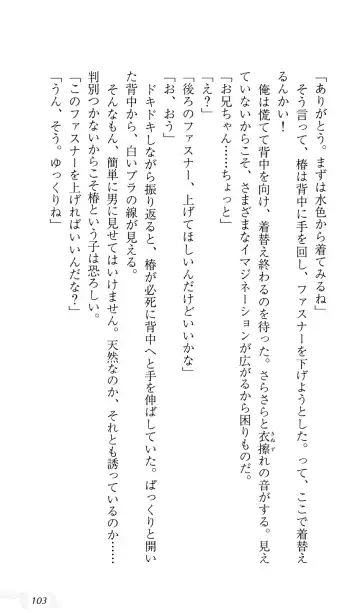 「ありがとう。まずは水色から着てみるね」
そう言って、椿は背中に手を回し、ファスナーを下げようとした。って、ここで着替え
るんかい！
俺は慌てて背中を向け、着替え終わるのを待った。さらさらと衣擦れの音がする。見え
きぬず
ていないからこそ、さまざまなイマジネーションが広がるから困りものだ。
「お兄ちゃん……ちょっと」
「え？」
「後ろのファスナー、上げてほしいんだけどいいかな」
「お、おう」
ドキドキしながら振り返ると、椿が必死に背中へと手を伸ばしていた。ぱっくりと開い
た背中から、白いブラの線が見える。
そんなもん、簡単に男に見せてはいけません。天然なのか、それとも誘っているのか……
判別つかないからこそ椿という子は恐ろしい。
「このファスナーを上げればいいんだな？」
「うん、そう。ゆっくりね」
103